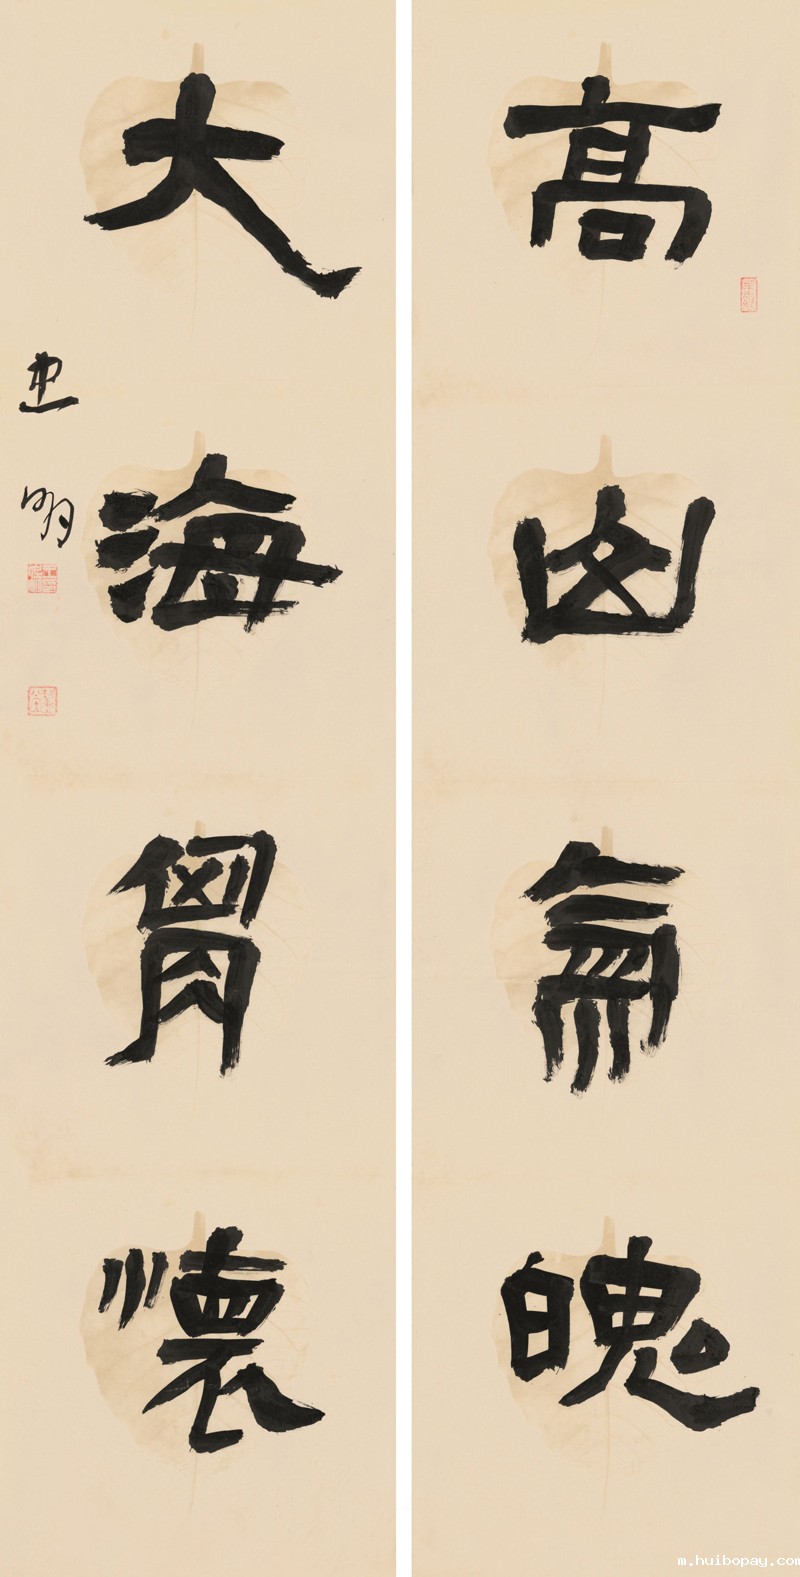 高山氣魄
大海胷懷
m.huibopay.com